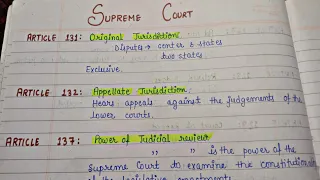 SUPREME COURT
ARTICLE 131: Original Jurisdiction:
Disputes → center & states
two states.
Exclusive.
ARTICLE 132: Appellate Jurisdiction:
Hears appeals against the judgements of the
lower courts.
ARTICLE 137: Power of Judicial review:
" " is the power of the
Supreme Court to examine the
of the legislative enactments